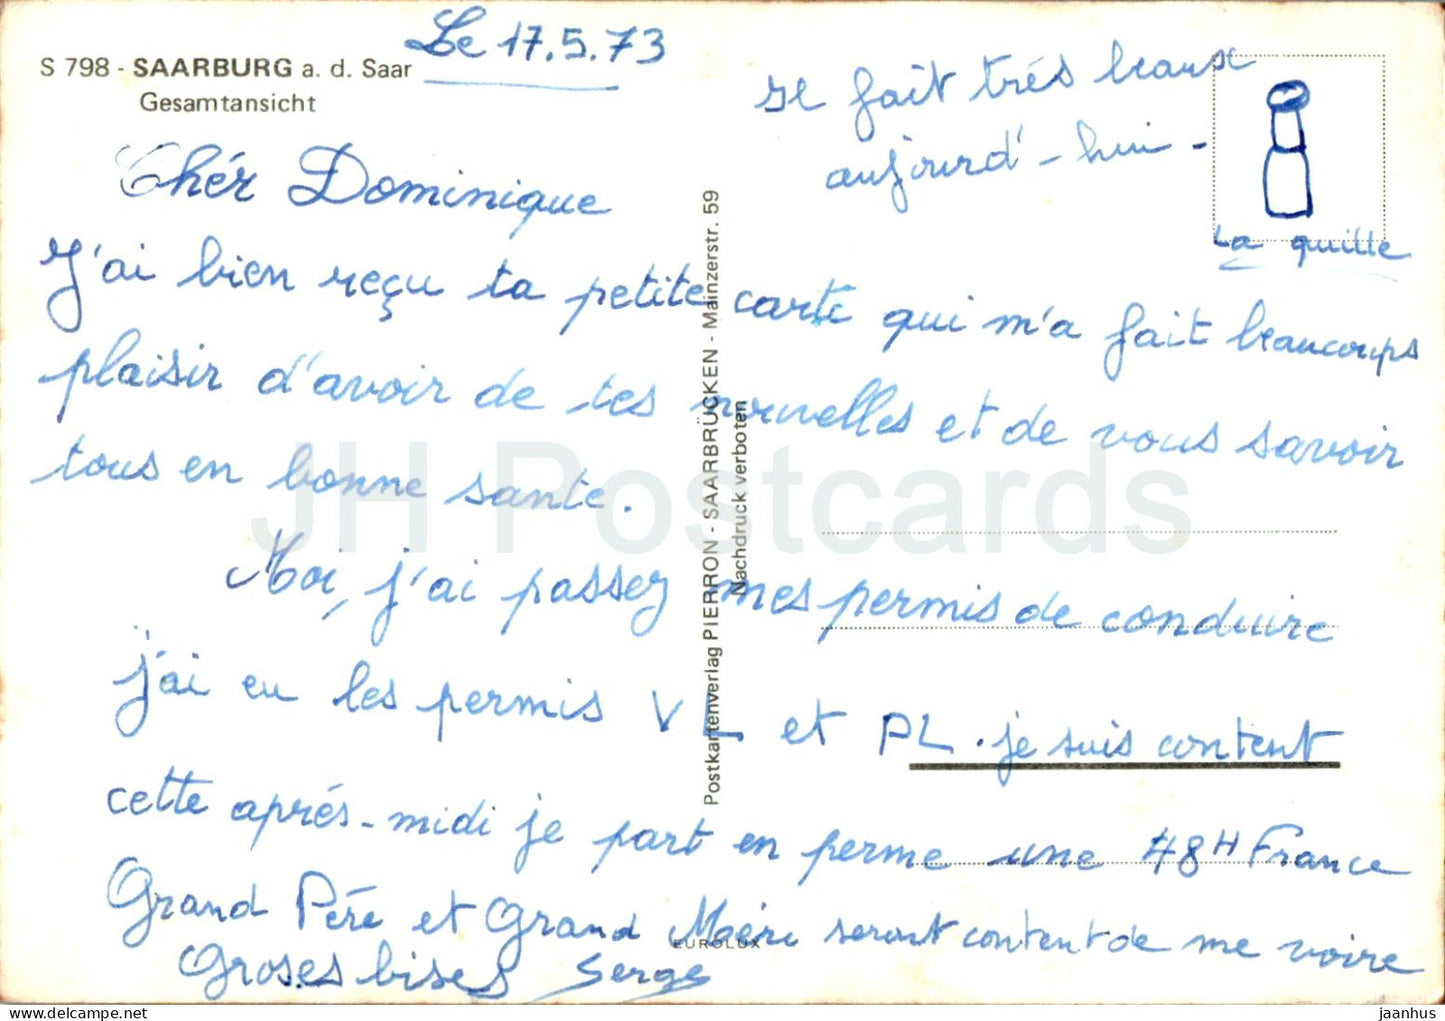 S 798 - SAARBURG a. d. Saar
Gesamtansicht
Le 17.5.73
Il fait trés beaux
aujourd'-hui-
La quille
Chér Dominique
J'ai bien reçu ta petite carte qui m'a fait beaucoups
plaisir d'avoir de tes nouvelles et de vous savoir
tous en bonne sante.
Moi, j'ai passez mes permis de conduire
j'ai eu les permis VL et PL. je suis content
cette aprés-midi je part en perme une 48H France
Grand Pére et Grand Méere seront content de me voire
Groses bises Serge
Postkartenverlag PIERRON - SAARBRÜCKEN - Mainzerstr. 59
Nachdruck verboten
EUROLUX
JH Postcards
jaanhus
delcampe.net